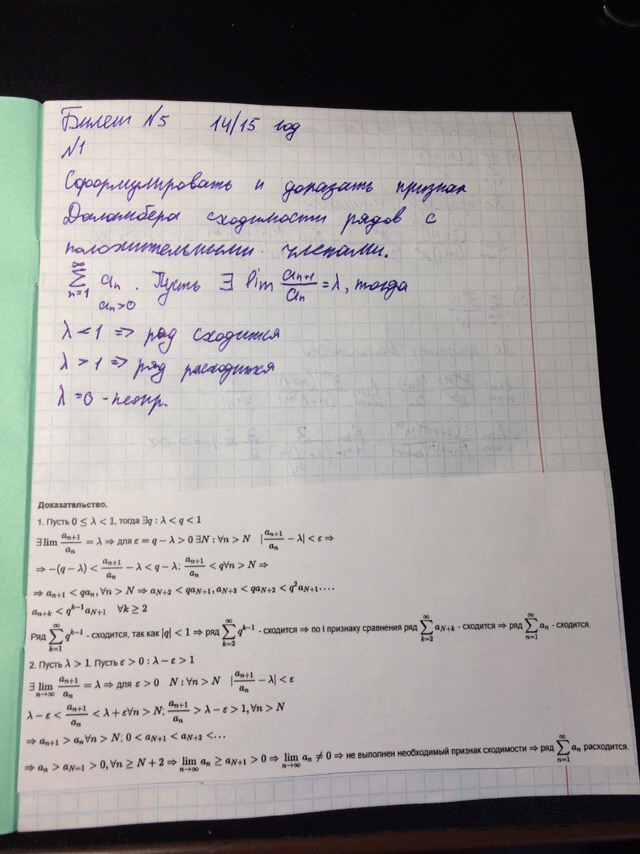 Билет №5 14/15 год
№1
Сформулировать и доказать признак
Даламбера сходимости рядов с
положительными членами.
∞∑n=1 an, an>0. Пусть ∃ lim an+1/an = λ, тогда
λ < 1 ⇒ ряд сходится
λ > 1 ⇒ ряд расходится
λ = 0 - неопр.
Доказательство.
1. Пусть 0 ≤ λ < 1, тогда ∃q : λ < q < 1
∃ lim an+1/an = λ ⇒ для ε = q − λ > 0 ∃N : ∀n > N |an+1/an − λ| < ε ⇒
⇒ −(q − λ) < an+1/an − λ < q − λ; an+1/an < q∀n > N ⇒
⇒ an+1 < qan, ∀n > N ⇒ aN+2 < qaN+1, aN+3 < qaN+2 < q²aN+1....
an+k < q^(k−1)aN+1 ∀k ≥ 2
Ряд ∞∑k=1 q^(k−1) - сходится, так как |q| < 1 ⇒ ряд ∞∑k=2 q^(k−1) - сходится ⇒ по I признаку сравнения ряд ∞∑k=2 aN+k - сходится ⇒ ряд ∞∑n=1 an - сходится.
2. Пусть λ > 1. Пусть ε > 0 : λ − ε > 1
∃ lim n→∞ an+1/an = λ ⇒ для ε > 0 N : ∀n > N |an+1/an − λ| < ε
λ − ε < an+1/an < λ + ε∀n > N; an+1/an > λ − ε > 1, ∀n > N
⇒ an+1 > an∀n > N; 0 < aN+1 < aN+2 < ...
⇒ an > aN=1 > 0, ∀n ≥ N + 2 ⇒ lim n→∞ an ≥ aN+1 > 0 ⇒ lim n→∞ an ≠ 0 ⇒ не выполнен необходимый признак сходимости ⇒ ряд ∞∑n=1 an расходится.